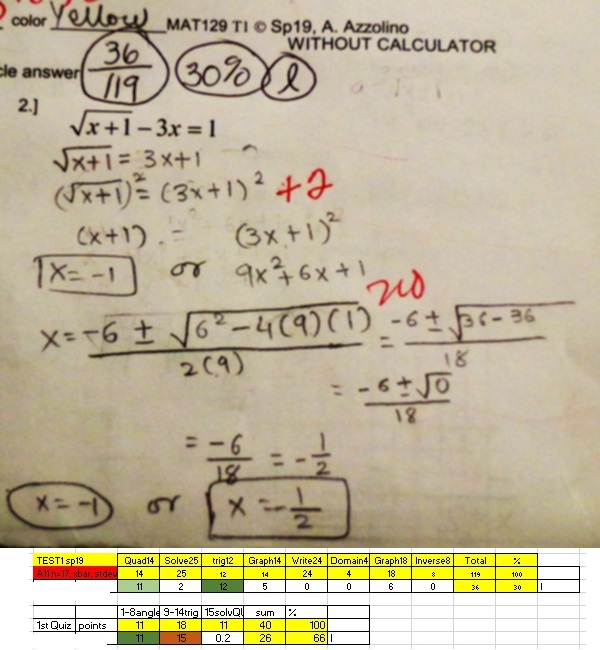 color Yellow MAT129 T1 © Sp19, A. Azzolino
WITHOUT CALCULATOR
cle answer 36/119 30% l
2.]
√x+1 − 3x = 1
√x+1 = 3x+1
(√x+1)² = (3x+1)² +2
(x+1) = (3x+1)²
x = -1 or 9x²+6x+1
no
x = -6 ± √6²-4(9)(1) / 2(9) = -6 ± √36-36 / 18
= -6 ± √0 / 18
= -6/18 = -1/2
x = -1 or x = -1/2
TEST1 sp19 Quad14 Solve25 trig12 Graph14 Write24 Domain4 Graph18 Inverse8 Total %
14 25 12 14 24 4 18 8 119 100
11 2 12 5 0 0 6 0 36 30 l
1-8angle 9-14trig 15solvQU sum %
1st Quiz points 11 18 11 40 100
11 15 0.2 26 66 l